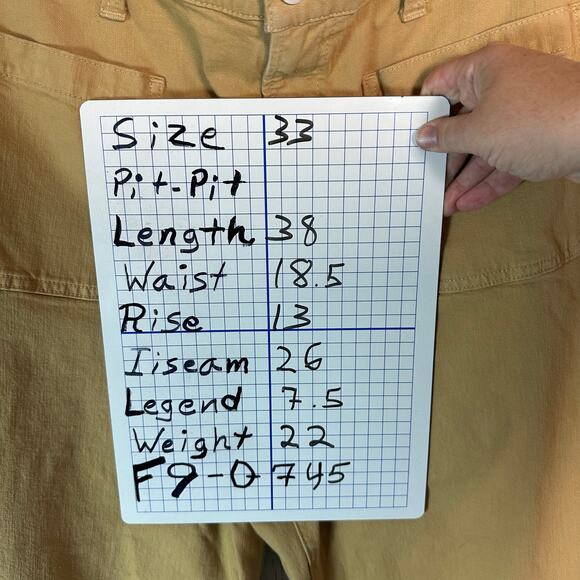 Size 33
Pit-Pit
Length 38
Waist 18.5
Rise 13
Iiseam 26
Legend 7.5
Weight 22
F9-0745